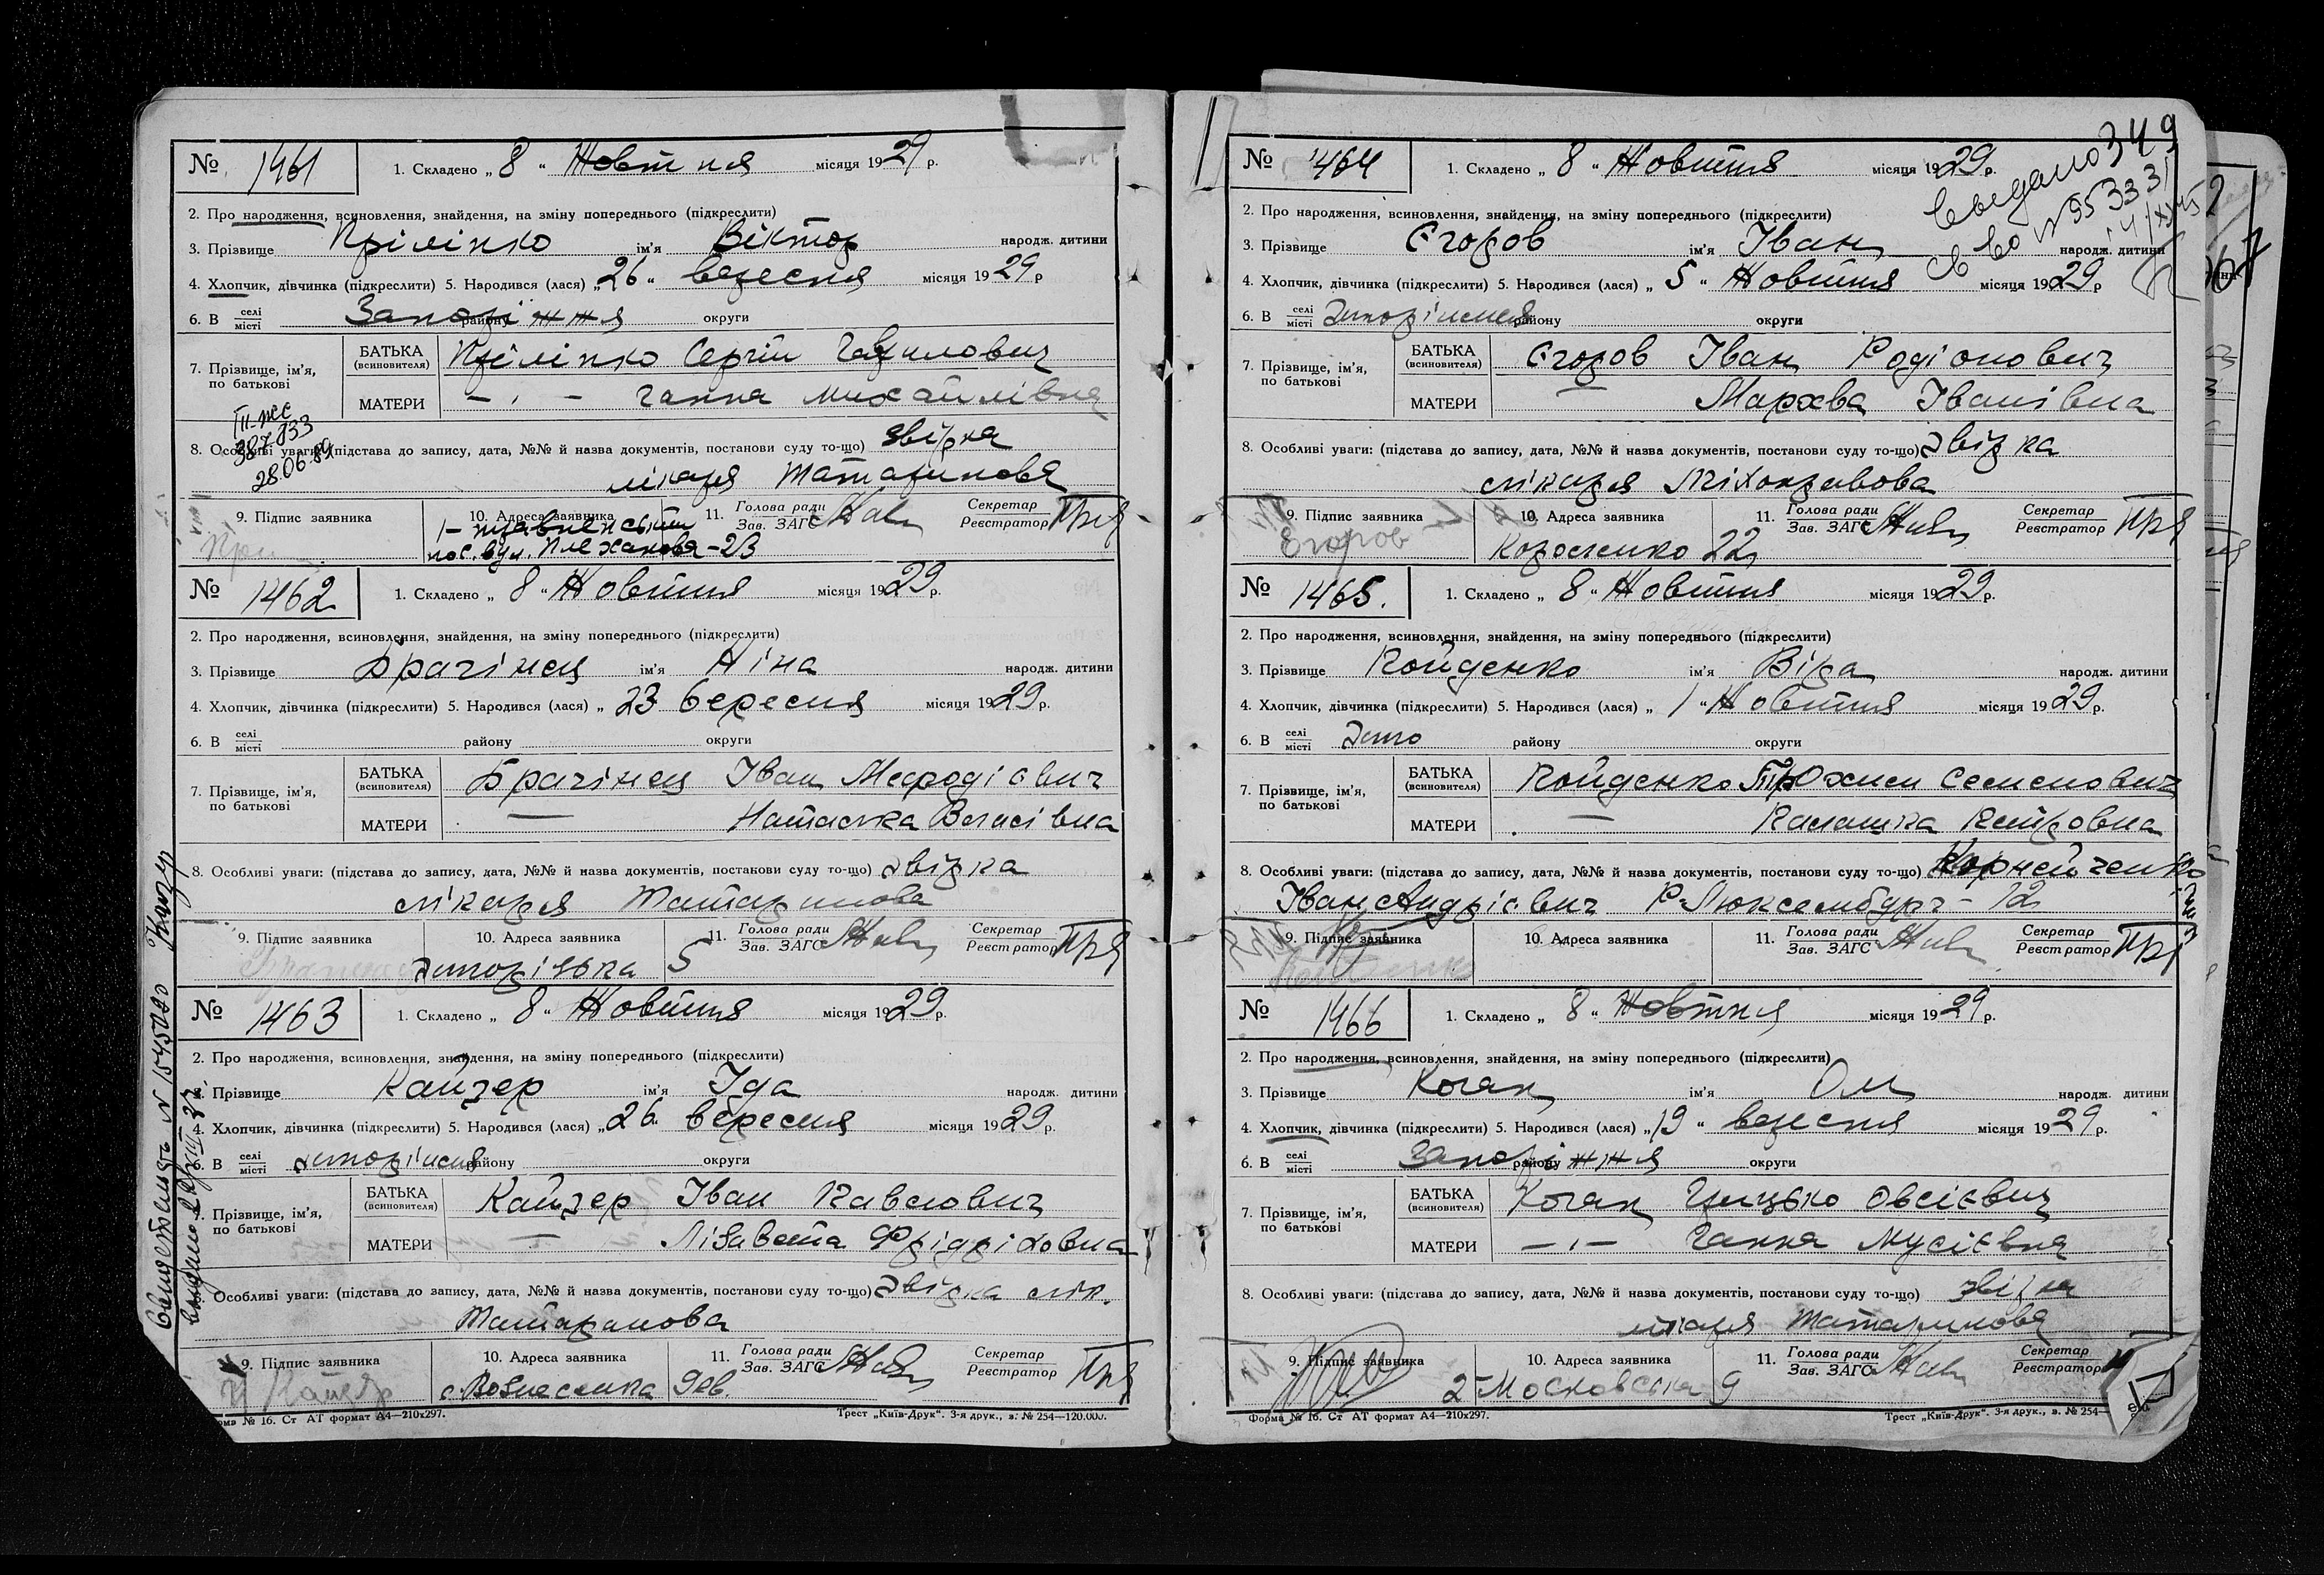 № 1461 1. Складено „ 8 “ Жовтня місяця 1929 р.
2. Про народження, всиновлення, знайдення, на зміну попереднього (підкреслити)
3. Прізвище Прілінко ім’я Віктор народж. дитини
4. Хлопчик, дівчинка (підкреслити) 5. Народився (лася) „ 26 “ вересня місяця 1929 р
6. В селі місті Запоріжжя району округи
7. Прізвище, ім’я, по батькові БАТЬКА (всиновителя) Прілінко Сергій Гаврилович
МАТЕРИ — „ — Ганна Михайлівна
III-ЖС
28.06.89
8. Особливі уваги: (підстава до запису, дата, №№ й назва документів, постанови суду то-що) звірка
лікаря Татаринова
9. Підпис заявника 10. Адреса заявника 11. Голова ради Зав. ЗАГС Секретар Реєстратор
пос. вул. Плеханова-23
№ 1462 1. Складено „ 8 “ Жовтня місяця 1929 р.
2. Про народження, всиновлення, знайдення, на зміну попереднього (підкреслити)
3. Прізвище Брагінец ім’я Ніна народж. дитини
4. Хлопчик, дівчинка (підкреслити) 5. Народився (лася) „ 23 вересня місяця 1929 р.
6. В селі місті району округи
7. Прізвище, ім’я, по батькові БАТЬКА (всиновителя) Брагінец Іван Мефодієвич
МАТЕРИ —
8. Особливі уваги: (підстава до запису, дата, №№ й назва документів, постанови суду то-що) звірка
лікаря Татаринова
9. Підпис заявника 10. Адреса заявника 11. Голова ради Зав. ЗАГС Секретар Реєстратор
5
№ 1463 1. Складено „ 8 “ Жовтня місяця 1929 р.
2. Про народження, всиновлення, знайдення, на зміну попереднього (підкреслити)
3. Прізвище Кайзер ім’я Іда народж. дитини
4. Хлопчик, дівчинка (підкреслити) 5. Народився (лася) „ 26 “ вересня місяця 1929 р.
6. В селі місті Запоріжжя району округи
7. Прізвище, ім’я, по батькові БАТЬКА (всиновителя) Кайзер Іван Павлович
МАТЕРИ — Лізавета Фрідріховна
8. Особливі уваги: (підстава до запису, дата, №№ й назва документів, постанови суду то-що) звірка лік.
Татаринова
9. Підпис заявника 10. Адреса заявника 11. Голова ради Зав. ЗАГС Секретар Реєстратор
Кайзер с. Вознесенка
Форма № 16. Ст АТ формат А4—210х297. Трест „Київ-Друк“. 3-я друк., з. № 254—120.000.
349
№ 1464 1. Складено „ 8 “ Жовтня місяця 1929 р.
2. Про народження, всиновлення, знайдення, на зміну попереднього (підкреслити)
3. Прізвище Єгоров ім’я Іван народж. дитини
4. Хлопчик, дівчинка (підкреслити) 5. Народився (лася) „ 5 “ Жовтня місяця 1929 р
6. В селі місті Запоріжжя району округи
7. Прізвище, ім’я, по батькові БАТЬКА (всиновителя) Єгоров Іван Родіонович
МАТЕРИ — Марфва Іванівна
8. Особливі уваги: (підстава до запису, дата, №№ й назва документів, постанови суду то-що) звірка
лікаря
9. Підпис заявника 10. Адреса заявника 11. Голова ради Зав. ЗАГС Секретар Реєстратор
Егоров Короленко 22
№ 1465. 1. Складено „ 8 “ Жовтня місяця 1929 р.
2. Про народження, всиновлення, знайдення, на зміну попереднього (підкреслити)
3. Прізвище Койденко ім’я Віра народж. дитини
4. Хлопчик, дівчинка (підкреслити) 5. Народився (лася) „ 1 “ Жовтня місяця 1929 р.
6. В селі місті Запо району округи
7. Прізвище, ім’я, по батькові БАТЬКА (всиновителя) Койденко Семенович
МАТЕРИ —
8. Особливі уваги: (підстава до запису, дата, №№ й назва документів, постанови суду то-що) Корнейченко
Іван Андрієвич Р-Люксембург-12
9. Підпис заявника 10. Адреса заявника 11. Голова ради Зав. ЗАГС Секретар Реєстратор
№ 1466 1. Складено „ 8 “ Жовтня місяця 1929 р.
2. Про народження, всиновлення, знайдення, на зміну попереднього (підкреслити)
3. Прізвище Коган ім’я народж. дитини
4. Хлопчик, дівчинка (підкреслити) 5. Народився (лася) „ 19 “ вересня місяця 1929 р.
6. В селі місті Запоріжжя району округи
7. Прізвище, ім’я, по батькові БАТЬКА (всиновителя) Коган Грицько Овсієвич
МАТЕРИ — „ — Ганна Мусієвна
8. Особливі уваги: (підстава до запису, дата, №№ й назва документів, постанови суду то-що) звірка
лікаря Татаринова
9. Підпис заявника 10. Адреса заявника 11. Голова ради Зав. ЗАГС Секретар Реєстратор
2-Московська 9
Форма № 16. Ст АТ формат А4—210х297. Трест „Київ-Друк“. 3-я друк., в. № 254—